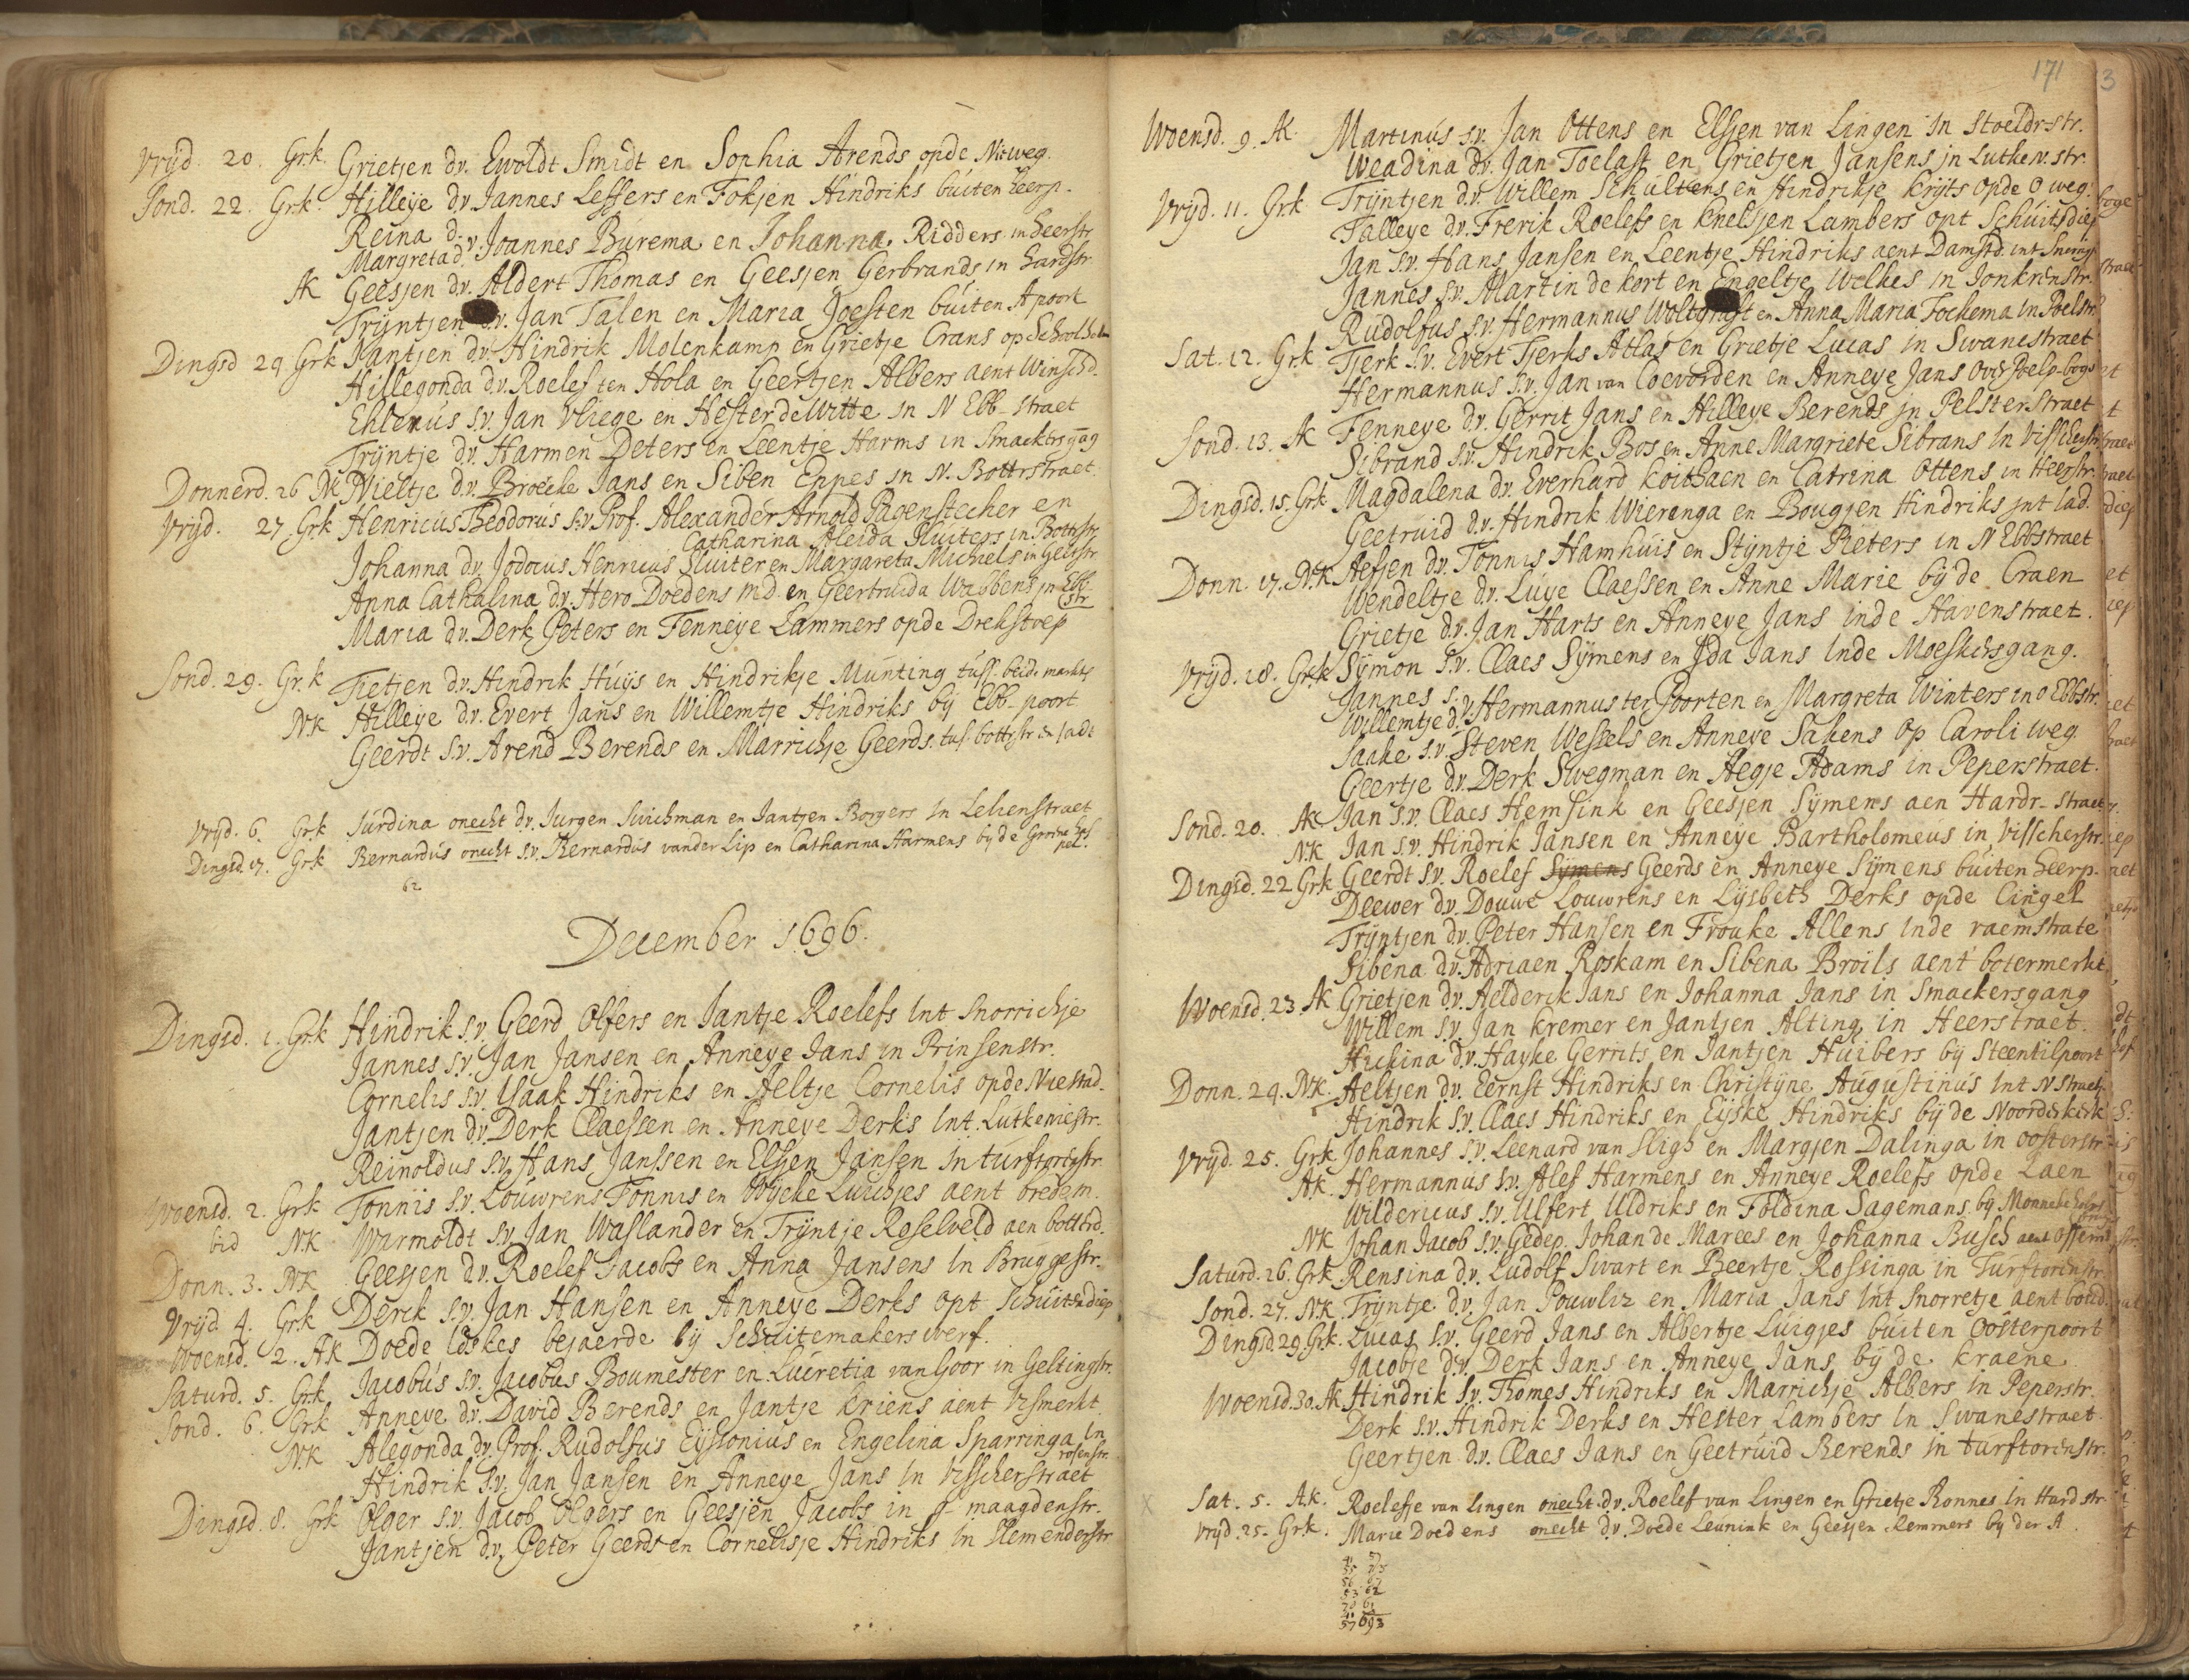 Vrijd. 20. Grk. Grietjen dv. Ewoldt Smidt en Sophia Arends opde Nieweg.
Sond. 22. Grk. Hilleije dv. Jannes Lessers en Fokjen Hindriks buiten heerp.
Reina d.
Margreta d. v. Joannes Burema en Johanna Ridders in heerstr
Ak Geesjen dv. Aldert Thomas en Geesjen Gerbrands in hardstr
Trijntjen d.v. Jan Talen en Maria Joesten buiten Apoort
Dingsd 24 Grk Jantjen dv. Hindrik Molenkamp en Grietje Crans op Schoolholm
Hillegonda dv. Roelef ten Hola en Geertjen Albers aent Winschd.
Ehlenus s.v. Jan Vliege en Hester de Witte in N Ebb-straet
Trijntje dv. Harmen Deters en Leentje Harms in Smackers gag
Donnerd. 26 Nk Nieltje d.v. Broecke Jans en Siben Eppes in N. Bottrstraet.
Vrijd. 27. Grk Henricus Theodorus s.v. Prof. Alexander Arnold Pagenstecher en
Catharina Aleida Sluiters in Bottstr.
Johanna dv. Jodocus Henricus Sluiter en Margareta Michels in Gelkstr
Anna Cathalina dv. Hero Doedens M.D. en Geertruida Wabbens in Ebb-
str
Maria dv. Derk Peters en Fenneije Lammers opde Drekstoep
Sond. 29. Gr.k Tietjen dv. Hindrik Huijs en Hindrikje Munting tuss. beide markt
NK Hilleije dv. Evert Jans en Willemtje Hindriks bij Ebb-poort
Geerdt s.v. Arend Berends en Marrichje Geerds. tus. bottrstr & jadt
Vrijd. 6. Grk Jurdina onecht dv. Jurgen Suichman en Jantjen Borgers in Lelienstraet
Dingsd. 17. Grk Bernardus onecht s.v. Bernardus vander Lip en Catharina Harmens bij de Groene hes
pel.
62
December 1696.
Dingsd. 1. Grk Hindrik s.v. Geerd Olfers en Jantje Roelefs int Snorrichje
Jannes s.v. Jan Jansen en Anneije Jans in Prinsenstr.
Cornelis s.v. Isaak Hindriks en Aeltje Cornelis opde Niestad.
Jantjen dv. Derk Claessen en Anneije Derks int. Lutkeniestr.
Reinoldus s.v. Hans Janssen en Elsjen Jansen in turftornstr
Woensd. 2. Grk Tonnis s.v. Louwrens Tonnis en Wijcke Luichjes aent bredem.
bid NK Warmoldt s.v. Jan Waslander en Trijntje Roselveld aen bottrd.
Donn. 3. NK Geesjen dv. Roelef Jacobs en Anna Jansens in Bruggestr.
Vrijd. 4. Grk Derck s.v. Jan Hansen en Anneije Derks opt Schuitendiep
Woensd. 2. AK Doede Idskes bejaerde bij Schuitemakers werf.
Saturd. 5. Grk. Jacobus s.v. Jacobus Boumester en Lucretia van Goor in Gelkingstr.
Sond. 6. Grk Anneije dv. David Berends en Jantje Kriens aent Vismerkt
NK Alegonda dv. Prof. Rudolfus Eijssonius en Engelina Sparringa in
rosenstr.
Hindrik s.v. Jan Jansen en Anneije Jans in Visscherstraet
Dingsd. 8. Grk Olger s.v. Jacob Olgers en Geesjen Jacobs in J-maagdenstr.
Jantjen dv. Peter Geerds en Cornelisje Hindriks in Slemenderstr
171
3
Woensd. 9. AK. Martinus s.v. Jan Ottens en Elsjen van Lingen in Stoeldrstr.
Weadina dv. Jan Toelast en Grietjen Jansens in Lutke.N.str.
Vrijd. 11. Grk Trijntjen d.v. Willem Schultens en Hindrikje Krijts opde O weg.
Talleije dv. Frerik Roelefs en Knelsjen Lambers opt Schuitsdiep
Jan s.v. Hans Jansen en Leentje Hindriks aent Damstd. int Snorrigj
Jannes s.v. Martin de Kort en Engeltje Welkes in Jonkrenstr.
Rudolfus s.v. Hermannus Woltgraft en Anna Maria Fockema in Poelstr
Sat. 12. Grk Tjerk s.v. Evert Tjerks Atlas en Grietje Lucas in Swanestraet
Hermannus s.v. Jan van Coevorden en Anneije Jans over Poelp-boge
Sond. 13. AK Fenneije d.v. Gerrit Jans en Hilleije Berends in Pelsterstraet
Sibrand s.v. Hindrik Bos en Anne Margriete Sibrans in Visscherstr
Dingsd. 15. Grk Magdalena dv. Everhard Koithaen en Catrina Ottens in Heerstr.
Geetruid dv. Hindrik Wieranga en Bougjen Hindriks int lad.
Donn. 17. NK Aefjen dv. Tonnis Hamhuis en Stijntje Pieters in N Ebbstraet
Wendeltje dv. Luije Claessen en Anne Marie bij de Craen
Grietje dv. Jan Harts en Anneije Jans inde Havenstraet.
Vrijd. 18. Grk Sijmon s.v. Claes Sijmens en Ida Jans inde Moeskersgang.
Jannes s.
Willemtje d. v. Hermannus ter Poorten en Margreta Winters in O Ebbstr.
Saake s.v. Steven Wessels en Anneije Sakens op Caroli weg.
Geertje dv. Derk Swegman en Aegje Adams in Peperstraet.
Sond. 20. AK Jan s.v. Claes Hemsink en Geesjen Sijmens aen Hardr-straet
NK Jan s.v. Hindrik Jansen en Anneije Bartholomeus in Visscherstr.
Dingsd. 22 Grk Geerdt s.v. Roelef Sijmens Geerds en Anneije Sijmens buiten heerp.
Deewer dv. Douwe Louwrens en Lijsbeth Derks opde Cingel
Trijntjen dv. Peter Hansen en Frouke Allens inde raemstrate
Sibena dv. Adriaen Roskam en Sibena Broils aent botermerkt
Woensd. 23. Ak Grietjen dv. Aelderik Jans en Johanna Jans in Smackersgang
Willem s.v. Jan Kremer en Jantjen Alting in Heerstraet.
Huhina dv. Hayke Gerrits en Jantjen Huibers bij Steentilpoort
Donn. 24. NK. Aeltjen dv. Eernst Hindriks en Christijne Augustinus int N straetj
Hindrik s.v. Claes Hindriks en Eijske Hindriks bij de Noorderkerk
Vrijd. 25. Grk Johannes s.v. Leenard van Sligh en Margjen Dalinga in oosterstr.
AK. Hermannus s.v. Alef Harmens en Anneije Roelefs opde Laen
Wildericus s.v. Ulfert Uldriks en Foldina Sagemans. bij Monneke holm
NK Johan Jacob s.v. Gedep. Johan de Marees en Johanna Busch aent Ossemrt
Saturd. 26. Grk Rensina d.v. Ludolf Swart en Beertje Rossinga in Turftorenstr
Sond. 27. NK Trijntje d.v. Jan Pouwliz en Maria Jans int Snorretje aent botrd.
Dingsd. 29. Grk. Lucas s.v. Geerd Jans en Albertje Luigjes buiten Oosterpoort
Jacobje d.v. Derk Jans en Anneije Jans bij de kraene
Woensd. 30. Ak Hindrik s.v. Thomes Hindriks en Marrichje Albers in Peperstr.
Derk s.v. Hindrik Derks en Hester Lambers in Swanestraet.
Geertjen d.v. Claes Jans en Geetruid Berends in turftorenstr.
Sat. 5. A.k. Roelefje van Lingen onecht dv. Roelef van Lingen en Grietje Ronnes in Hardstr
Vrijd. 25. Grk. Marie Doedens onecht d.v. Doede Leunink en Geesjen Remmers bij der A.
57 693